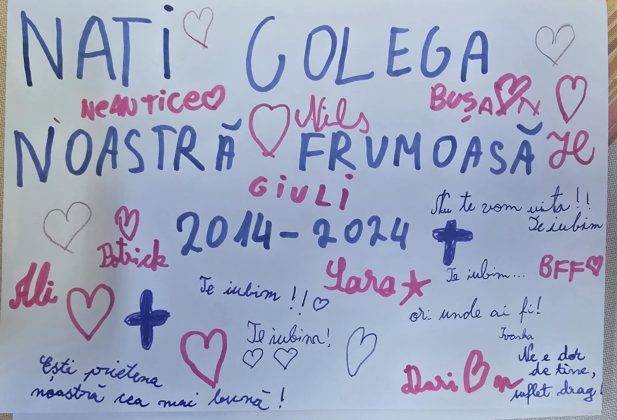 NATI COLEGA
NEANTICEO
BUȘA
Nils
NOASTRĂ FRUMOASĂ
GIULI
2014-2024
Nu te vom uita!!
Te iubim
Patrick
Te iubim...
BFF
Ali
Yara
Te iubim!!
ori unde ai fi!
Te iubim!
Ivanka
Ești prietena
noastră cea mai bună!
Dari
Ne e dor
de tine,
suflet drag!